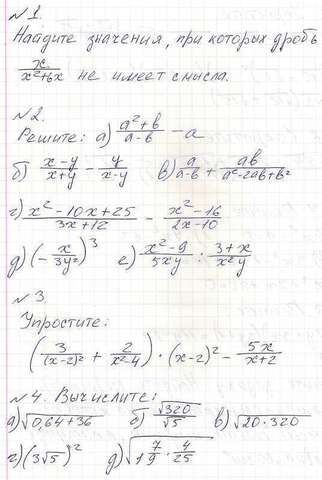 №1.
Найдите значения, при которых дробь
x/(x²+6x) не имеет смысла.
№2.
Решите: а) (a²+b)/(a-b) - a
б) (x-y)/(x+y) - y/(x-y) в) a/(a-b) + ab/(a²-2ab+b²)
г) (x²-10x+25)/(3x+12) - (x²-16)/(2x-10)
д) (-x/(3y²))³ е) (x²-9)/(5xy) : (3+x)/(x²y)
№3.
Упростите:
(3/(x-2)² + 2/(x²-4)) · (x-2)² - 5x/(x+2)
№4. Вычислите:
а) √(0,64+36) б) √320/√5 в) √(20·320)
г) (3√5)² д) √(1 7/9 · 4/25)